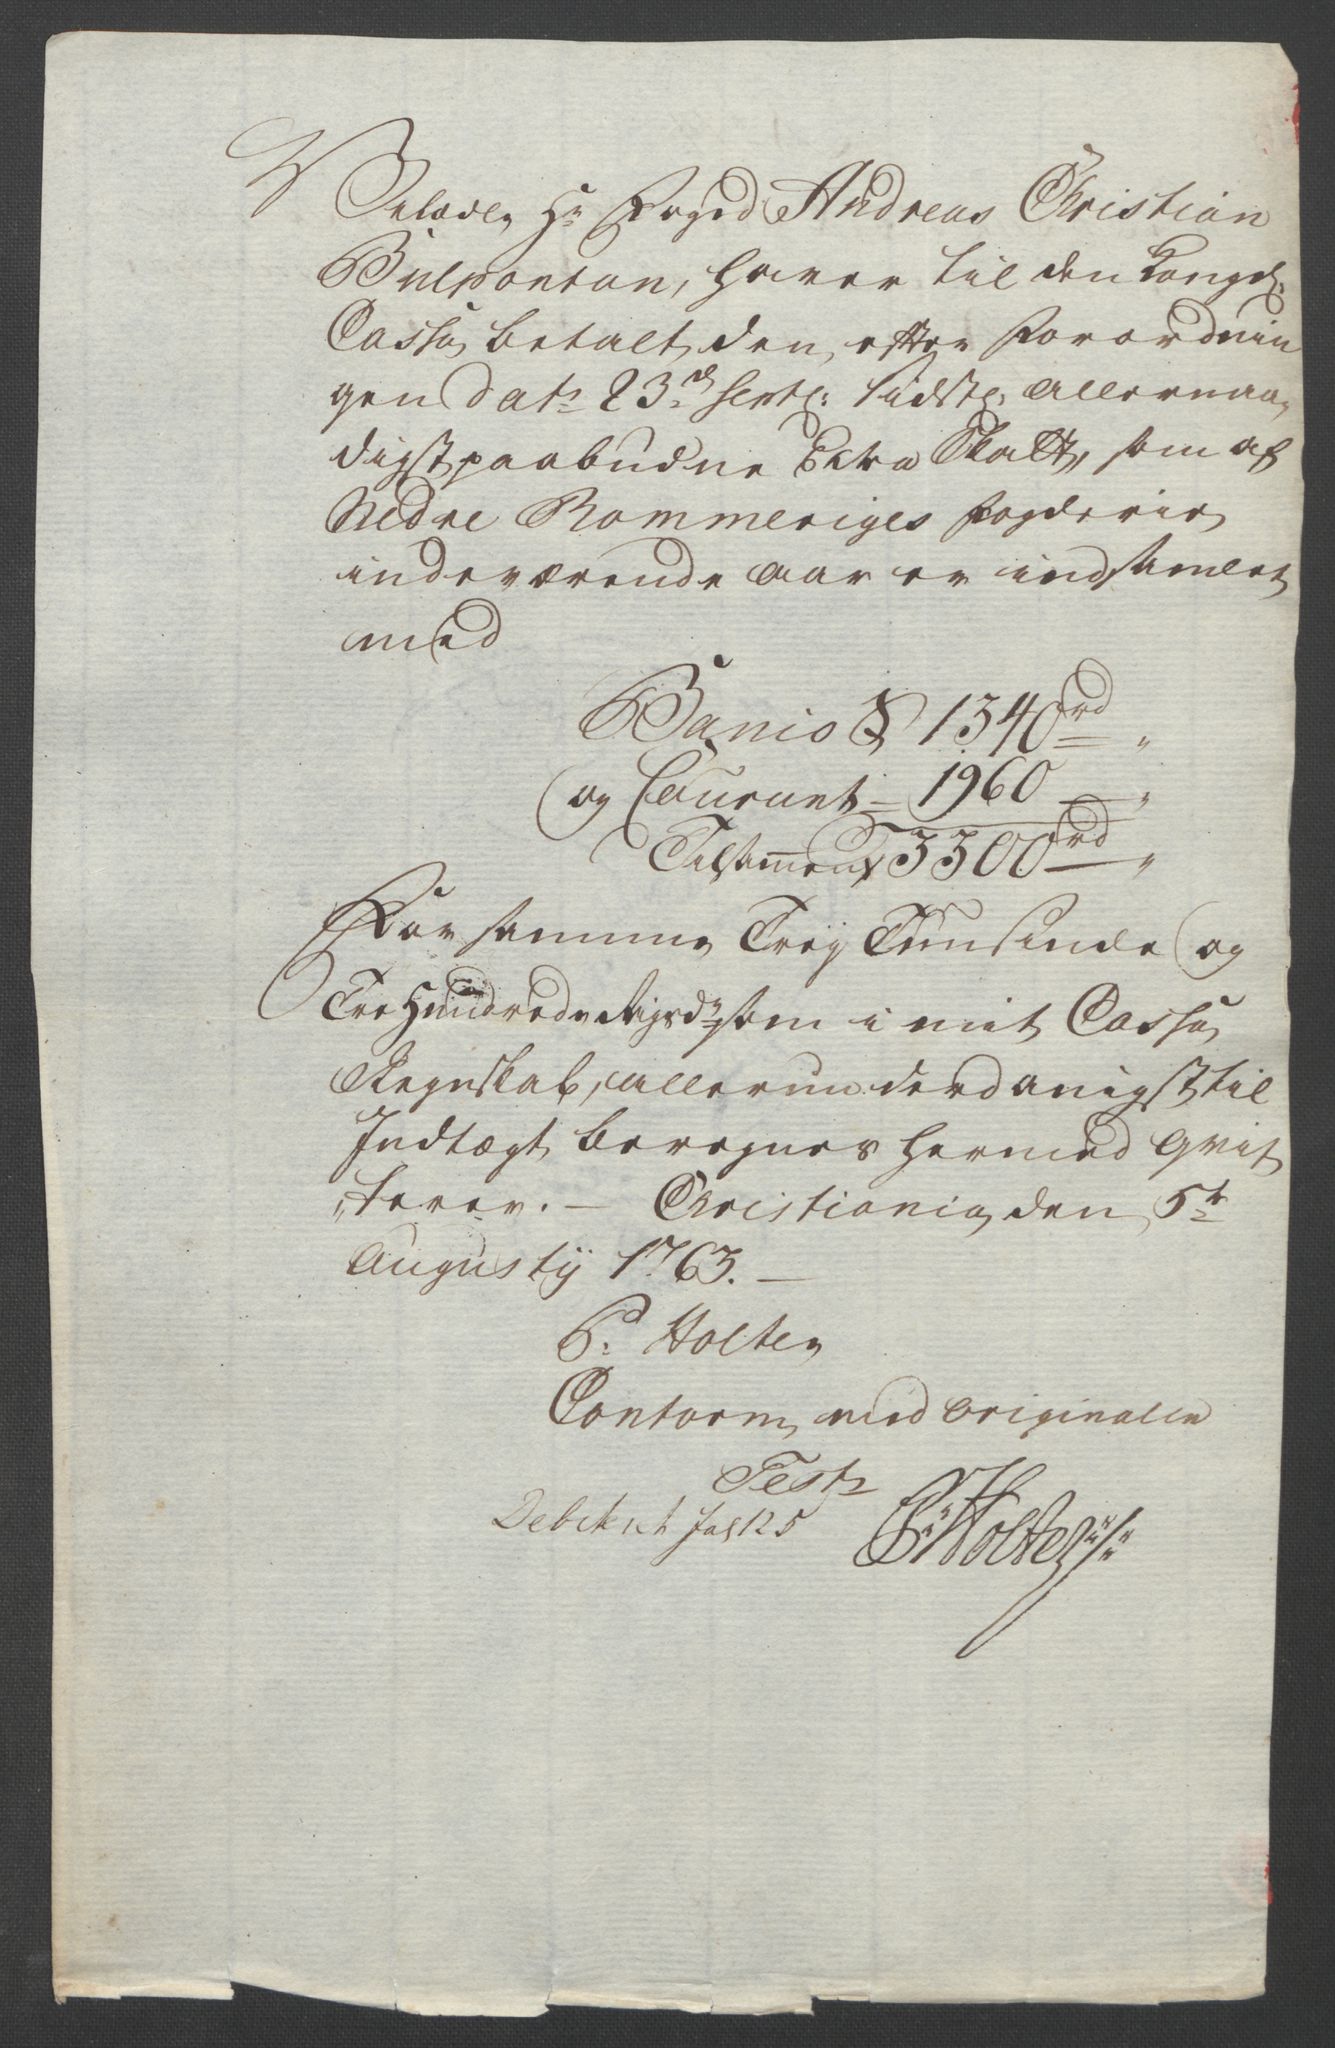 Velædle Hr Foged Andreas Christian
Bulpontan, haver til den Kongel:
Cassa betalt den, efter Forordnin
gen dat: 23de Septbr: sidstl: allernaa
digst paabudne Extra Skatt, som af
Nedre Rommeriges Fogderie
indeværende aar er indsamlet
med
Banco S 1340rd "
og Courant = 1960 — "
Tilsammen 3300rd "
For samme Trey Tusinde og
Tre Hundrede Rigsdr som i mit Cassa
Regnskab, allerunderdanigst til
Indtægt beregnes hermed qvit
terer. — Christiania den 5te
Augustij 1763. —
P. Holten
Conform med Originalen
Test:
Debitert fol 125
P: Holten